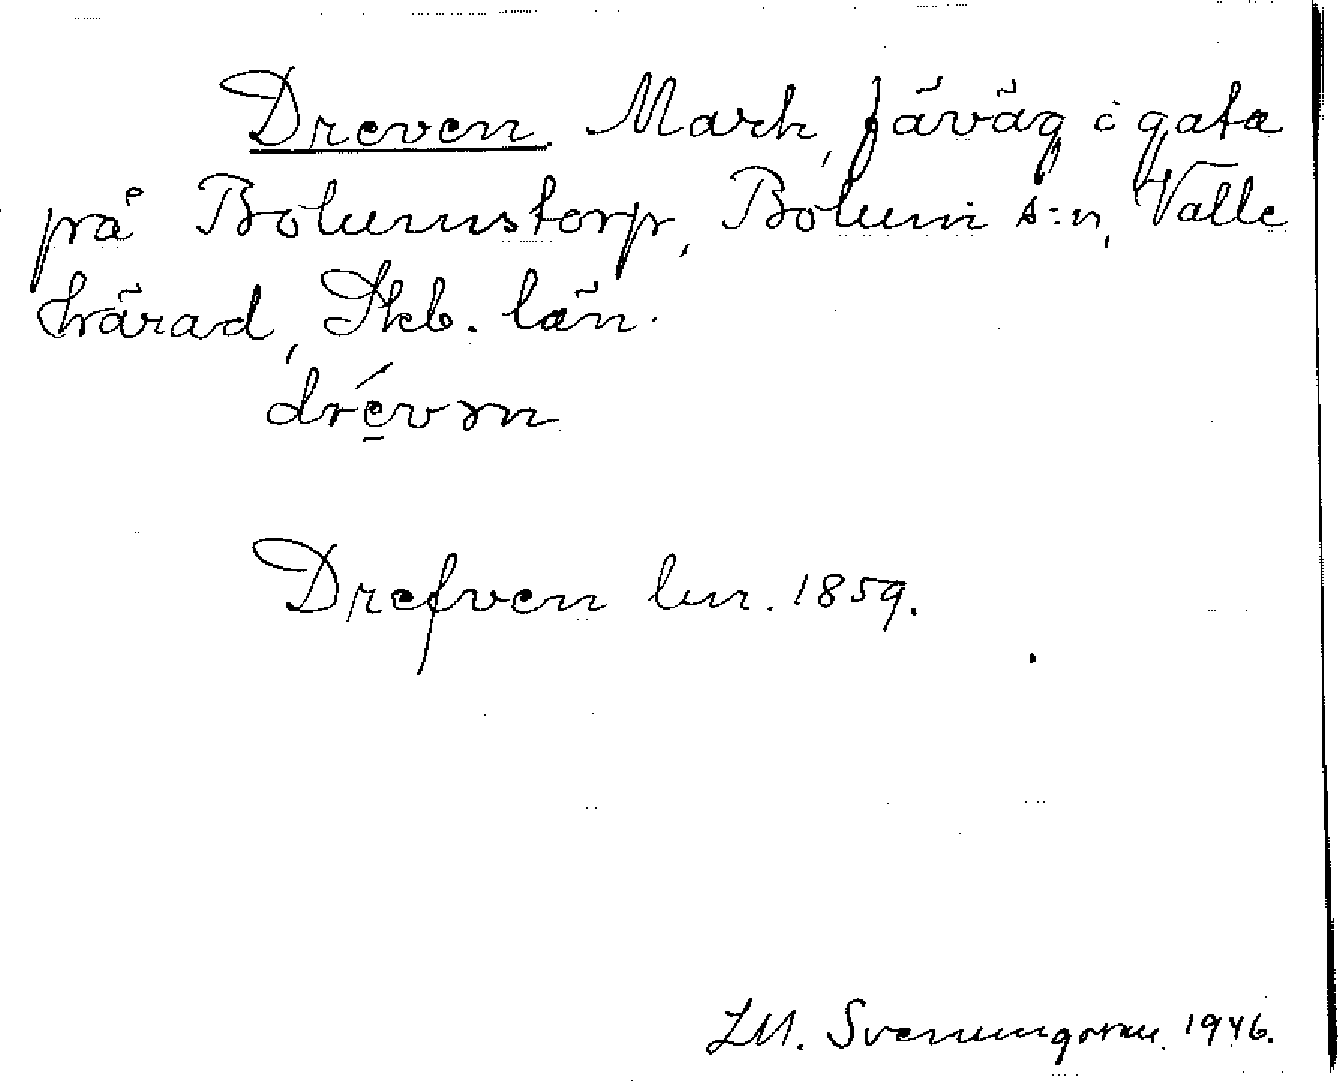 Dreven. Mark, fäväg i gata
på Bolumstorp, Bolum s:n, Valle
härad, Skb. län.
drévm
Drefven lm. 1859.
LM. Svenungsson 1946.